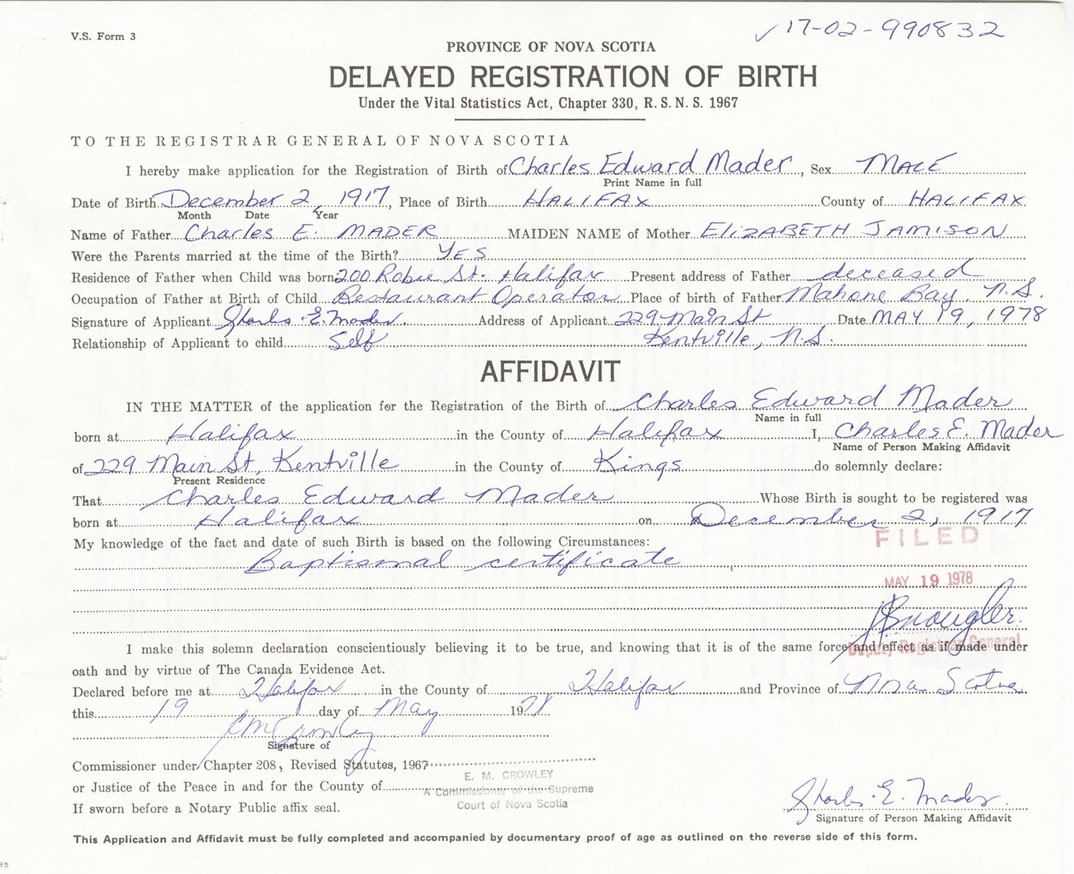 V.S. Form 3
✓17-02-990832
PROVINCE OF NOVA SCOTIA
DELAYED REGISTRATION OF BIRTH
Under the Vital Statistics Act, Chapter 330, R.S.N.S. 1967
TO THE REGISTRAR GENERAL OF NOVA SCOTIA
I hereby make application for the Registration of Birth of Charles Edward Mader, Sex MALE
Print Name in full
Date of Birth December 2, 1917, Place of Birth HALIFAX County of HALIFAX
Month Date Year
Name of Father Charles E. MADER MAIDEN NAME of Mother ELIZABETH JAMISON
Were the Parents married at the time of the Birth? YES
Residence of Father when Child was born 200 Robie St. Halifax Present address of Father deceased
Occupation of Father at Birth of Child Restaurant Operator Place of birth of Father Mahone Bay N.S.
Signature of Applicant Charles E. Mader Address of Applicant 229 Main St Date MAY 19, 1978
Relationship of Applicant to child Self Kentville, N.S.
AFFIDAVIT
IN THE MATTER of the application for the Registration of the Birth of Charles Edward Mader
Name in full
born at Halifax in the County of Halifax I, Charles E. Mader
Name of Person Making Affidavit
of 229 Main St, Kentville in the County of Kings do solemnly declare:
Present Residence
That Charles Edward Mader Whose Birth is sought to be registered was
born at Halifax on December 2, 1917
FILED
My knowledge of the fact and date of such Birth is based on the following Circumstances:
Baptismal certificate
MAY 19 1978
Deputy Registrar General
I make this solemn declaration conscientiously believing it to be true, and knowing that it is of the same force and effect as if made under
oath and by virtue of The Canada Evidence Act.
Declared before me at Halifax in the County of Halifax and Province of Nova Scotia
this 19 day of May 1978
Signature of
Commissioner under Chapter 208, Revised Statutes, 1967
E. M. CROWLEY
or Justice of the Peace in and for the County of
A Commissioner of the Supreme
Court of Nova Scotia
If sworn before a Notary Public affix seal.
Charles E. Mader
Signature of Person Making Affidavit
This Application and Affidavit must be fully completed and accompanied by documentary proof of age as outlined on the reverse side of this form.